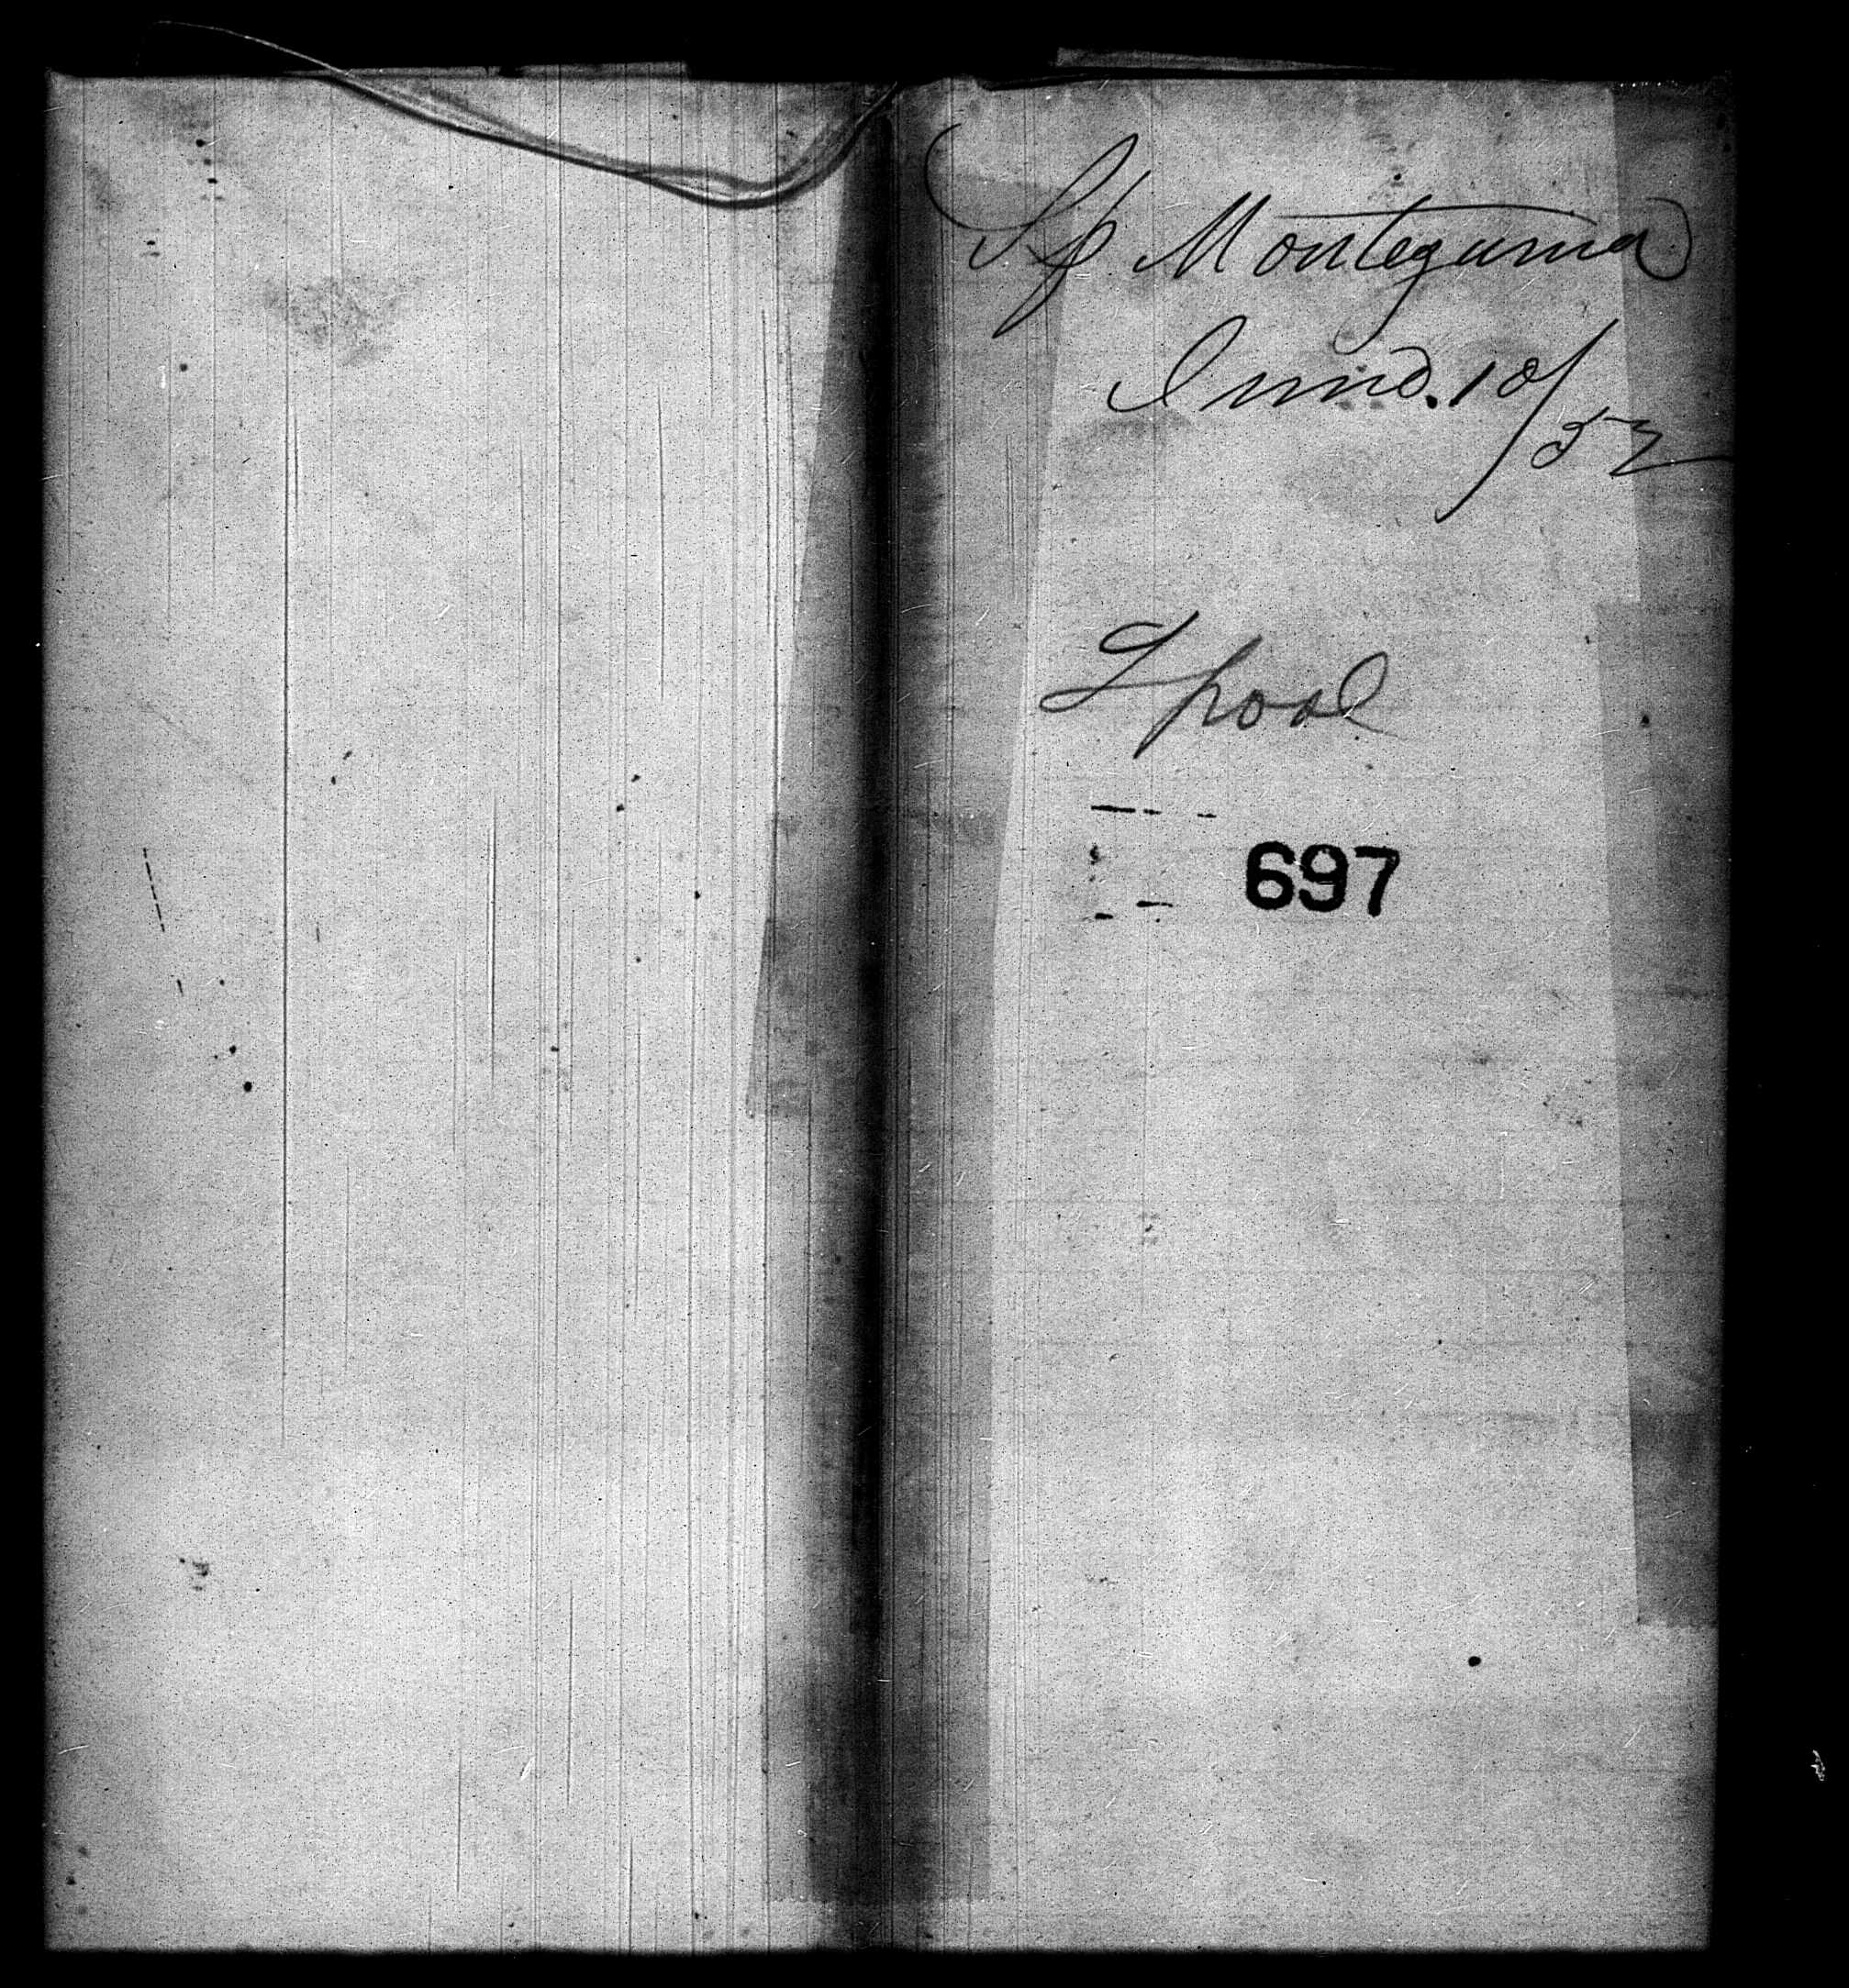 Sp Montezuma
June. 10/52
Lpool
697